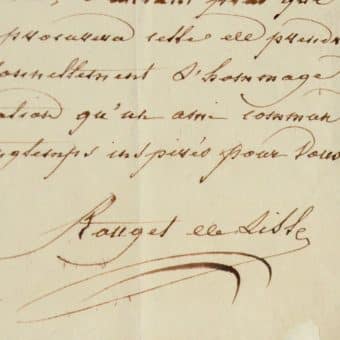 , d'autant plus que
procurera celle de prendr
onnellement l'hommage
ation qu'un ami commun
ngtemps inspirés pour vous
Rouget de Lisle